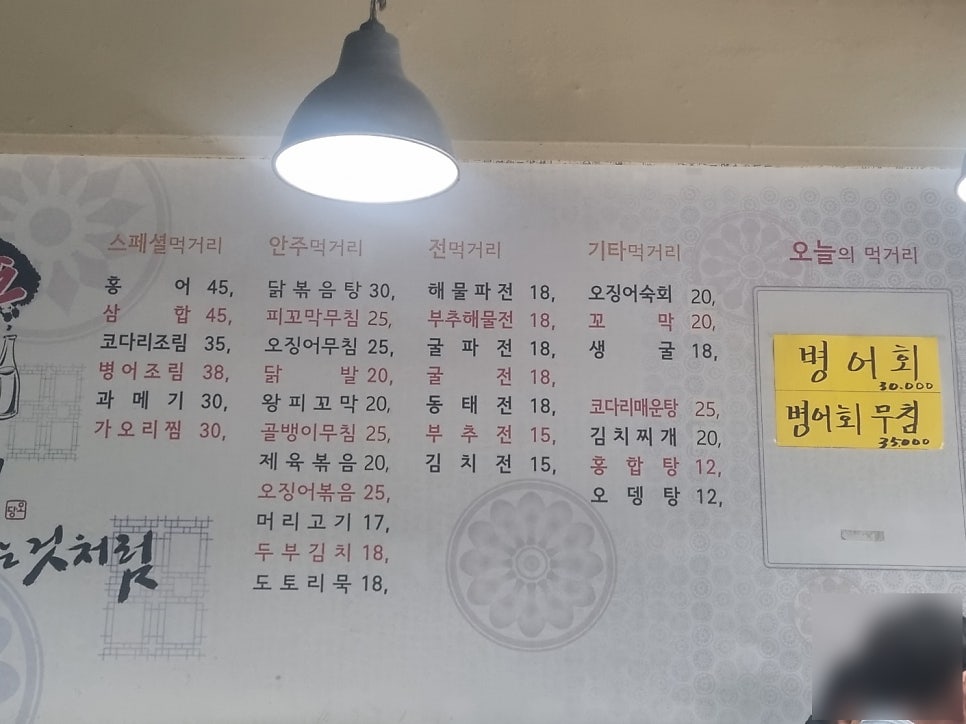 스페셜먹거리
홍 어 45,
삼 합 45,
코다리조림 35,
병어조림 38,
과 메 기 30,
가오리찜 30,
안주먹거리
닭볶음탕 30,
피꼬막무침 25,
오징어무침 25,
닭 발 20,
왕피꼬막 20,
골뱅이무침 25,
제육볶음 20,
오징어볶음 25,
머리고기 17,
두부김치 18,
도토리묵 18,
전먹거리
해물파전 18,
부추해물전 18,
굴 파 전 18,
굴 전 18,
동 태 전 18,
부 추 전 15,
김 치 전 15,
기타먹거리
오징어숙회 20,
꼬 막 20,
생 굴 18,
코다리매운탕 25,
김치찌개 20,
홍 합 탕 12,
오 뎅 탕 12,
오늘의 먹거리
병어회
30.000
병어회 무침
35000
는것처럼